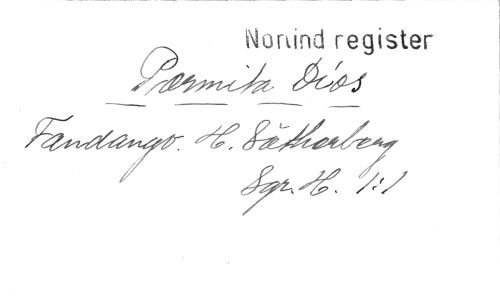 Nonind register
Permita Dios
Fandango. H. Sätherberg
Sgr. H. 1:1